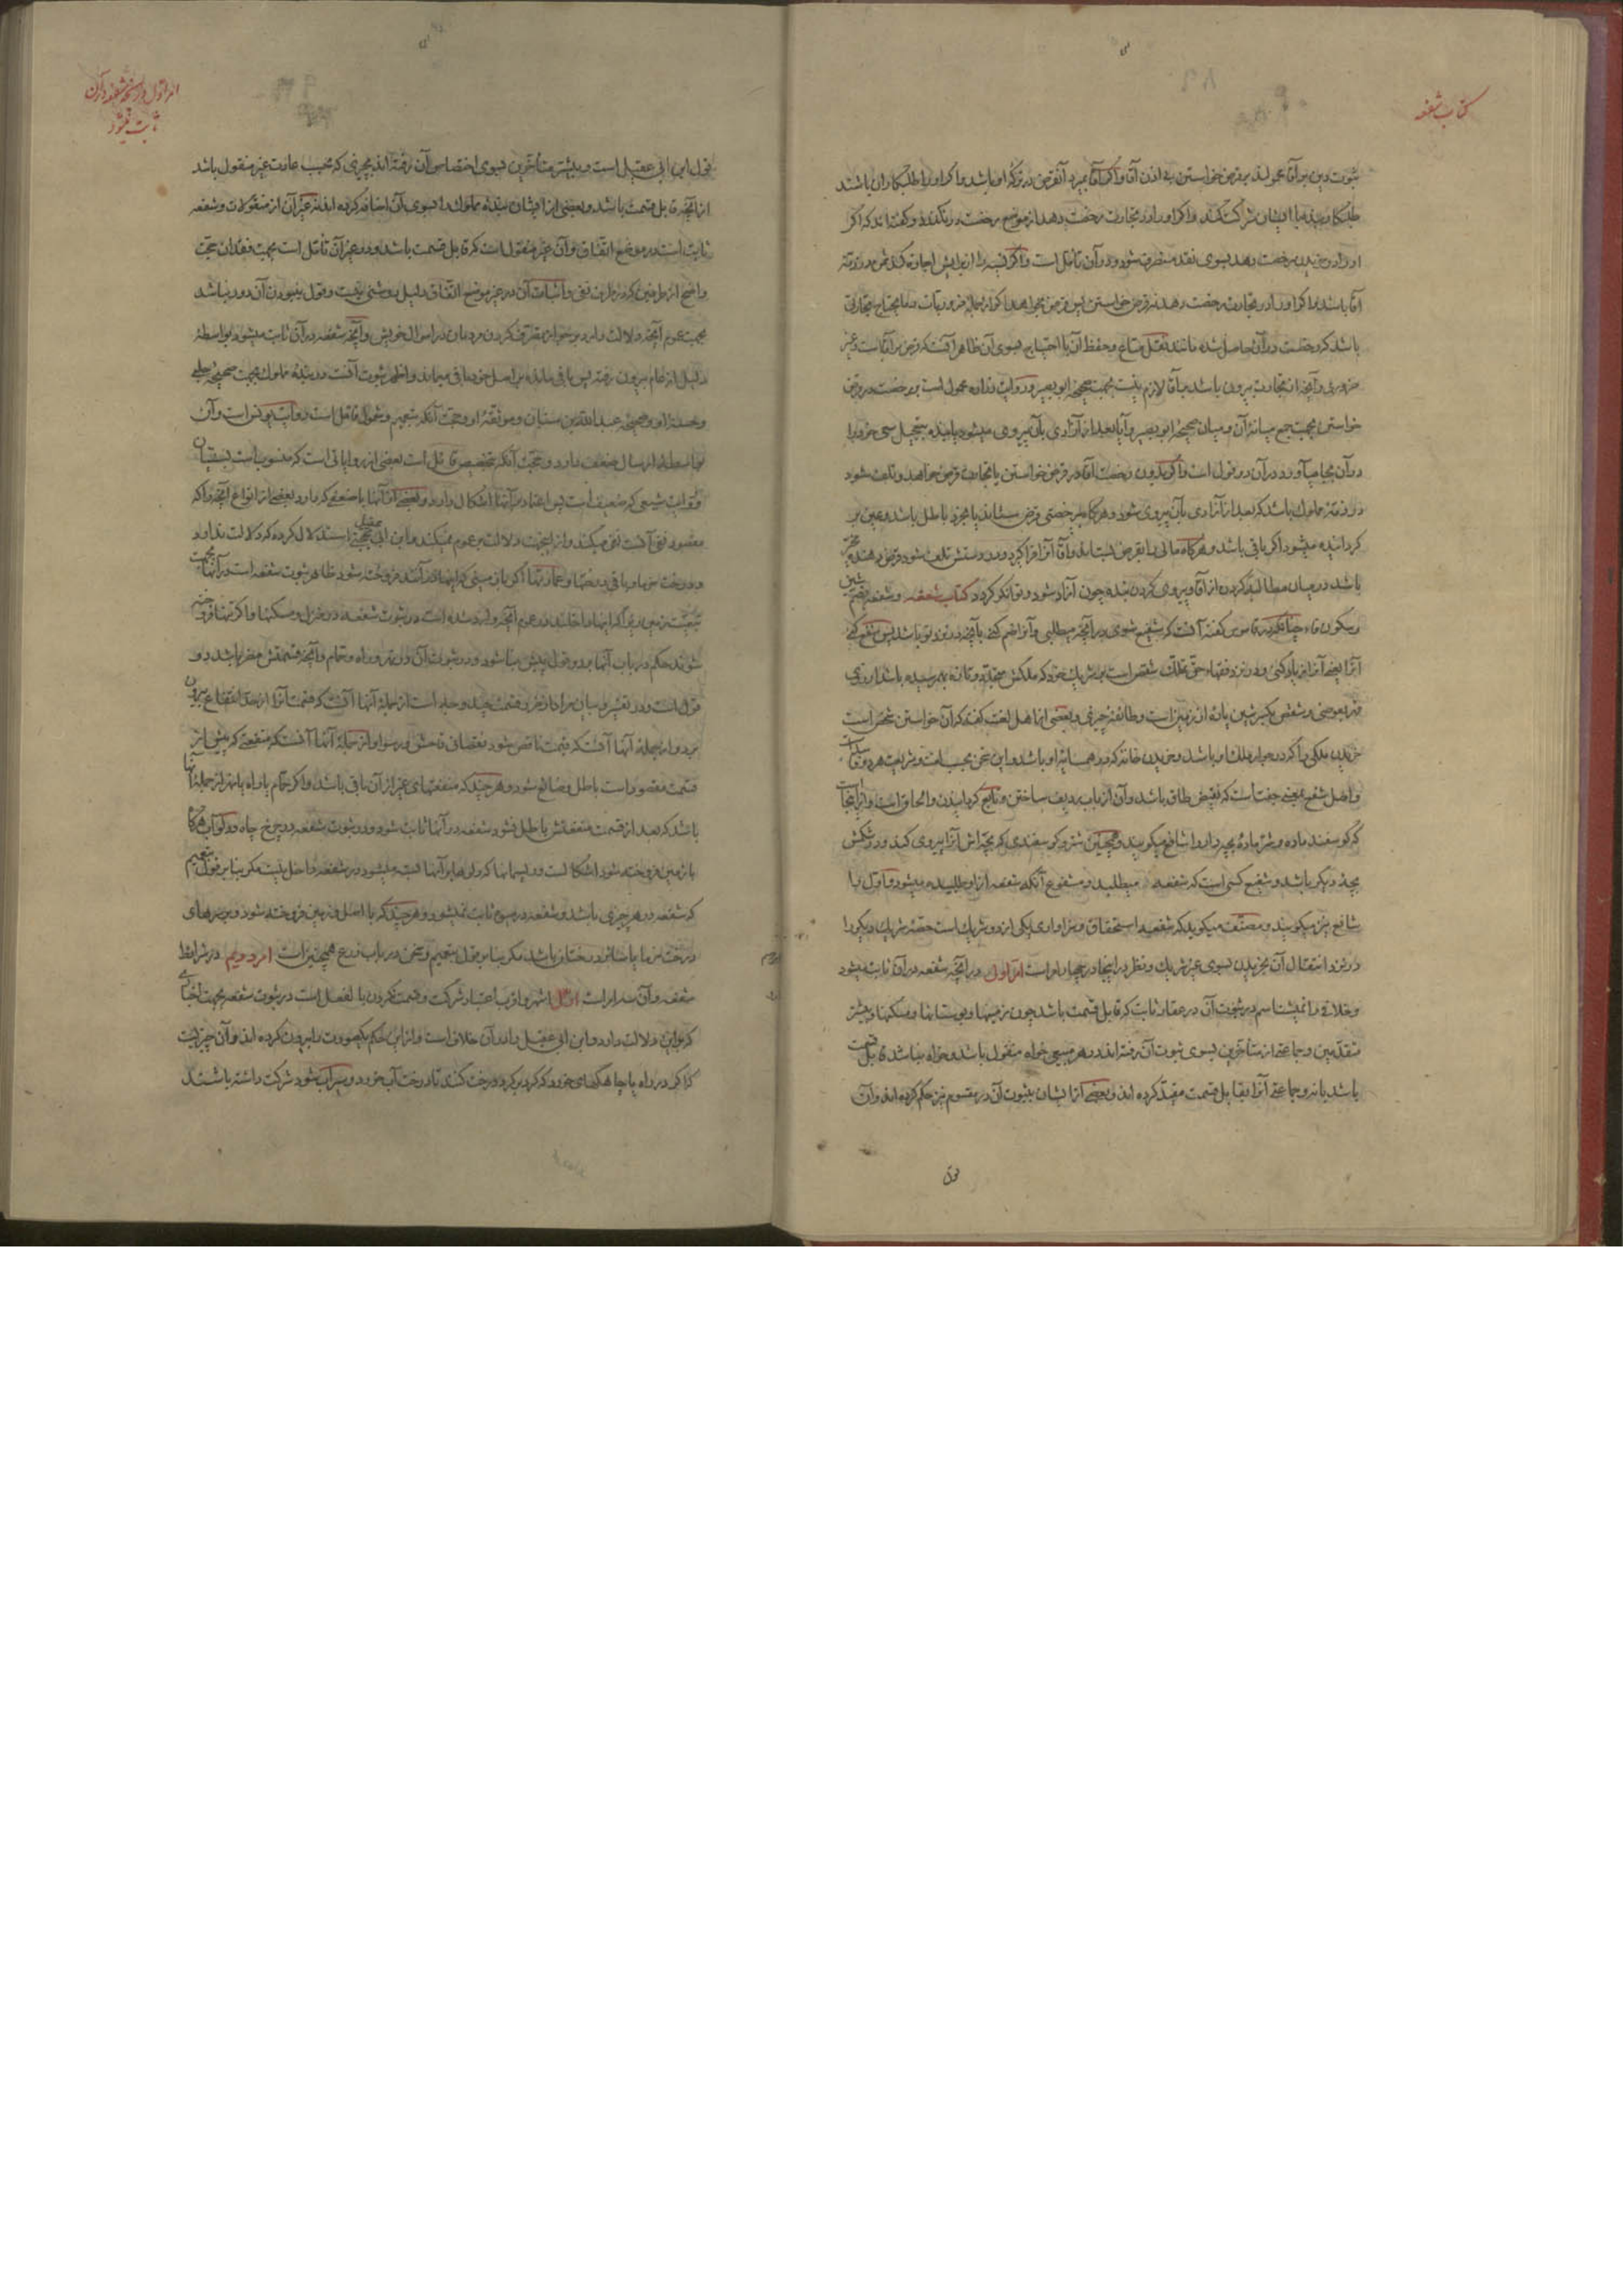 کتاب شفعه
ثبوت دین بر آقا محمول بر قرض خواستن به اذن آقا و اگر آقا بمیرد آنقرض در ترکه او باشد و اگر او را طلبکاران باشند
طلبکار بنده با ایشان شرکت کند و اگر او را در تجارت رخصت دهد از موضع رخصت در نگذرد و گفته‌اند که اگر
او را در خریدن رخصت دهد بسوی نقد منصرف شود و در آن تأمل است و اگر نسیه را از برایش اجازه کند ثمن در ذمّه
آقا باشد و اگر او را در تجارت رخصت دهد نه قرض خواستن پس قرض بخواهد اگر از جمله ضروریات و ما یحتاج تجارتی
باشد که رخصت در آن حاصل شده مانند نقل متاع و حفظ آن با احتیاج بسوی آن ظاهر آنست که قرض بر آقا است و غیر
ضروری و آنچه از تجارت بیرون باشد بر آقا لازم نیست بجهت صحیحه ابو بصیر و روایت زراره محمول است بر رخصت در قرض
خواستن بجهت جمع میانه آن و میان صحیحه ابو بصیر و آیا بعد از آزادی بآن پیروی میشود یا بنده بتعجیل سعی خود را
در آن بجا می‌آورد در آن دو قول است و اگر بدون رخصت آقا در قرض خواستن یا تجارت قرض خواهد و تلف شود
در ذمّه مملوک باشد که بعد از آزادی بآن پیروی شود و هرگاه بی رخصتی قرض بستاند یا بخرد باطل باشد و عین بر
گردانیده میشود اگر باقی باشد و هرگاه مالی را بقرض بستاند و آقا آنرا فرا گیرد و در دستش تلف شود قرض دهنده مخیّر
باشد در میان مطالبه کردن از آقا و پیروی کردن بنده چون آزاد شود و توانگر گردد کتاب شفعه و شفعه بضم شین
و سکون فاء چنانکه در قاموس گفته آنست که شفیع شوی در آنچه میطلبی و آنرا ضم کنی بآنچه در نزد تو باشد پس شفع کنی
آنرا یعنی آنرا زیاد کنی و در نزد فقهاء حق تملک شقص است بر شریک خود که ملکش متجدد و تازه بهمرسیده باشد از روی
قهر بعوضی و شقص بکسر شین پاره از زمین است و طائفه از چیزی و بعضی از اهل لغت گفته که آن خواستن شخص است
خریدن ملکی را که در جوار ملک او باشد و خریدن خانه که در همسایه او باشد و این سخن بحسب لغت و شریعت هر دو فاسد است
و اصل شفع بمعنی جفت است که نقیض طاق باشد و آن از باب ردیف ساختن و تابع گردانیدن و الحاق است و از اینجاست
که گوسفند ماده و شتر ماده بچه‌دار را شافع میگویند و همچنین شتر و گوسفندی که بچه‌اش آنرا پیروی کند و در شکمش
بچه دیگر باشد و شفیع کسی است که شفعه میطلبد و مشفوع آنکه شفعه از او طلبیده میشود و اول را
شافع نیز میگویند و مصنّف میگوید که شفعه استحقاق و سزاواری یکی از دو شریک است حصه شریک دیگر را
در نزد انتقال آن بخریدن بسوی غیر شریک و نظر در اینجا در چهار امر است امر اول در آنچه شفعه در آن ثابت میشود
و خلافی را نمیشناسم در ثبوت آن در عقار ثابت که قابل قسمت باشد چون زمینها و بوستانها و مسکنها و بیشتر
متقدمین و جماعتی از متأخرین بسوی ثبوت آن رفته‌اند در هر مبیعی خواه منقول باشد و خواه نباشد قابل قسمت
باشد یا نه و جماعتی آنرا بقابل قسمت مقید کرده‌اند و بعضی از ایشان بثبوت آن در مقسوم نیز حکم کرده‌اند و آن
قول
امر اول در آنچه شفعه در آن
ثابت میشود
قول ابن ابی عقیل است و بیشتر متأخرین بسوی اختصاص آن رفته‌اند بچیزی که بحسب عادت غیر منقول باشد
از آنچه قابل قسمت باشد و بعضی از ایشان بنده مملوک را بسوی آن اضافه کرده‌اند نه غیر آن از منقولات و شفعه
ثابت است در موضع اتفاق و آن غیر منقول است که قابل قسمت باشد و در غیر آن تأمل است بجهت فقدان حجت
واضح از طرفین که در طرف نفی و اثبات آن در غیر موضع اتفاق دلیل روشنی نیست و قول بنبودن آن دور نباشد
بجهت عموم آنچه دلالت دارد بر جواز تصرف کردن مردمان در اموال خویش و آنچه شفعه در آن ثابت میشود بواسطه
دلیل از عام بیرون رفته پس باقی مانده بر اصل خود باقی میماند و اظهر ثبوت آنست در بنده مملوک بجهت صحیحه حلبی
و حسنه او و صحیحه عبد الله بن سنان و موثقه او و حجت آنکه بتعمیم و شمول قائل است روایت یونس است و آن
بواسطه ارسال ضعف دارد و حجت آنکه بتخصیص قائل است بعضی از روایاتی است که منسوب است بسنیان
مقصود نفی آنست نفی میکند و از اینجهت دلالت بر عموم نمیکند و ابن ابی عقیل
و درخت خرما و باقی درختها و عمارتها اگر با زمینی که اینها در آنند فروخته شود ظاهر ثبوت شفعه است در آنها بجهت
تبعیت زمین زیرا که اینها داخلند در عموم آنچه وارد شده است در ثبوت شفعه در منزل و مسکنها و اگر تنها فروخته
شوند حکم در باب آنها بر دو قول پیش بنا شود و در ثبوت آن در نهر و راه و حمام و آنچه قسمتش مضر باشد دو
قول است و در تفسیر و بیان مراد از ضرر قسمت چند وجه است از جمله آنها آنست که قسمت آنرا از حدّ انتفاع بیرون
برد و از جمله آنها آنست که قیمت ناقص شود نقصانی فاحش و رسوا و از جمله آنها آنست که منفعتی که پیش از
قسمت مقصود است باطل و ضائع شود و هر چند که منفعتهای غیر از آن باقی باشد و اگر حمام یا راه یا نهر از جمله آنها
باشد که بعد از قسمت منفعتش باطل نشود شفعه در آنها ثابت شود و در ثبوت شفعه در چرخ چاه و دولاب هرگاه
با زمین فروخته شود اشکال است و ریسمانها که دلوها بر آنها بسته میشود در شفعه داخل نیست مگر بنا بر قول بتعمیم
که شفعه در هر چیزی باشد و شفعه در میوه ثابت نمیشود و هر چند که با اصل و زمین فروخته شود و بر سرهای
درخت خرما یا سائر درختان باشد مگر بنا بر قول بتعمیم و سخن در باب زرع همچنین است امر دویم در شرائط
شفعه و آن سه امر است اول اشهر و اقرب اعتبار شرکت و قسمت نکردن بالفعل است در ثبوت شفعه بجهت اخباری
که بر این دلالت دارد و ابن ابی عقیل را در آن خلاف است و از این حکم یکصورت را بیرون کرده‌اند و آن چیزیست
که اگر در راه یا چاهگهای خرد که گرد بر گرد درخت کنند تا درخت آب خورد و سیراب شود شرکت داشته باشند